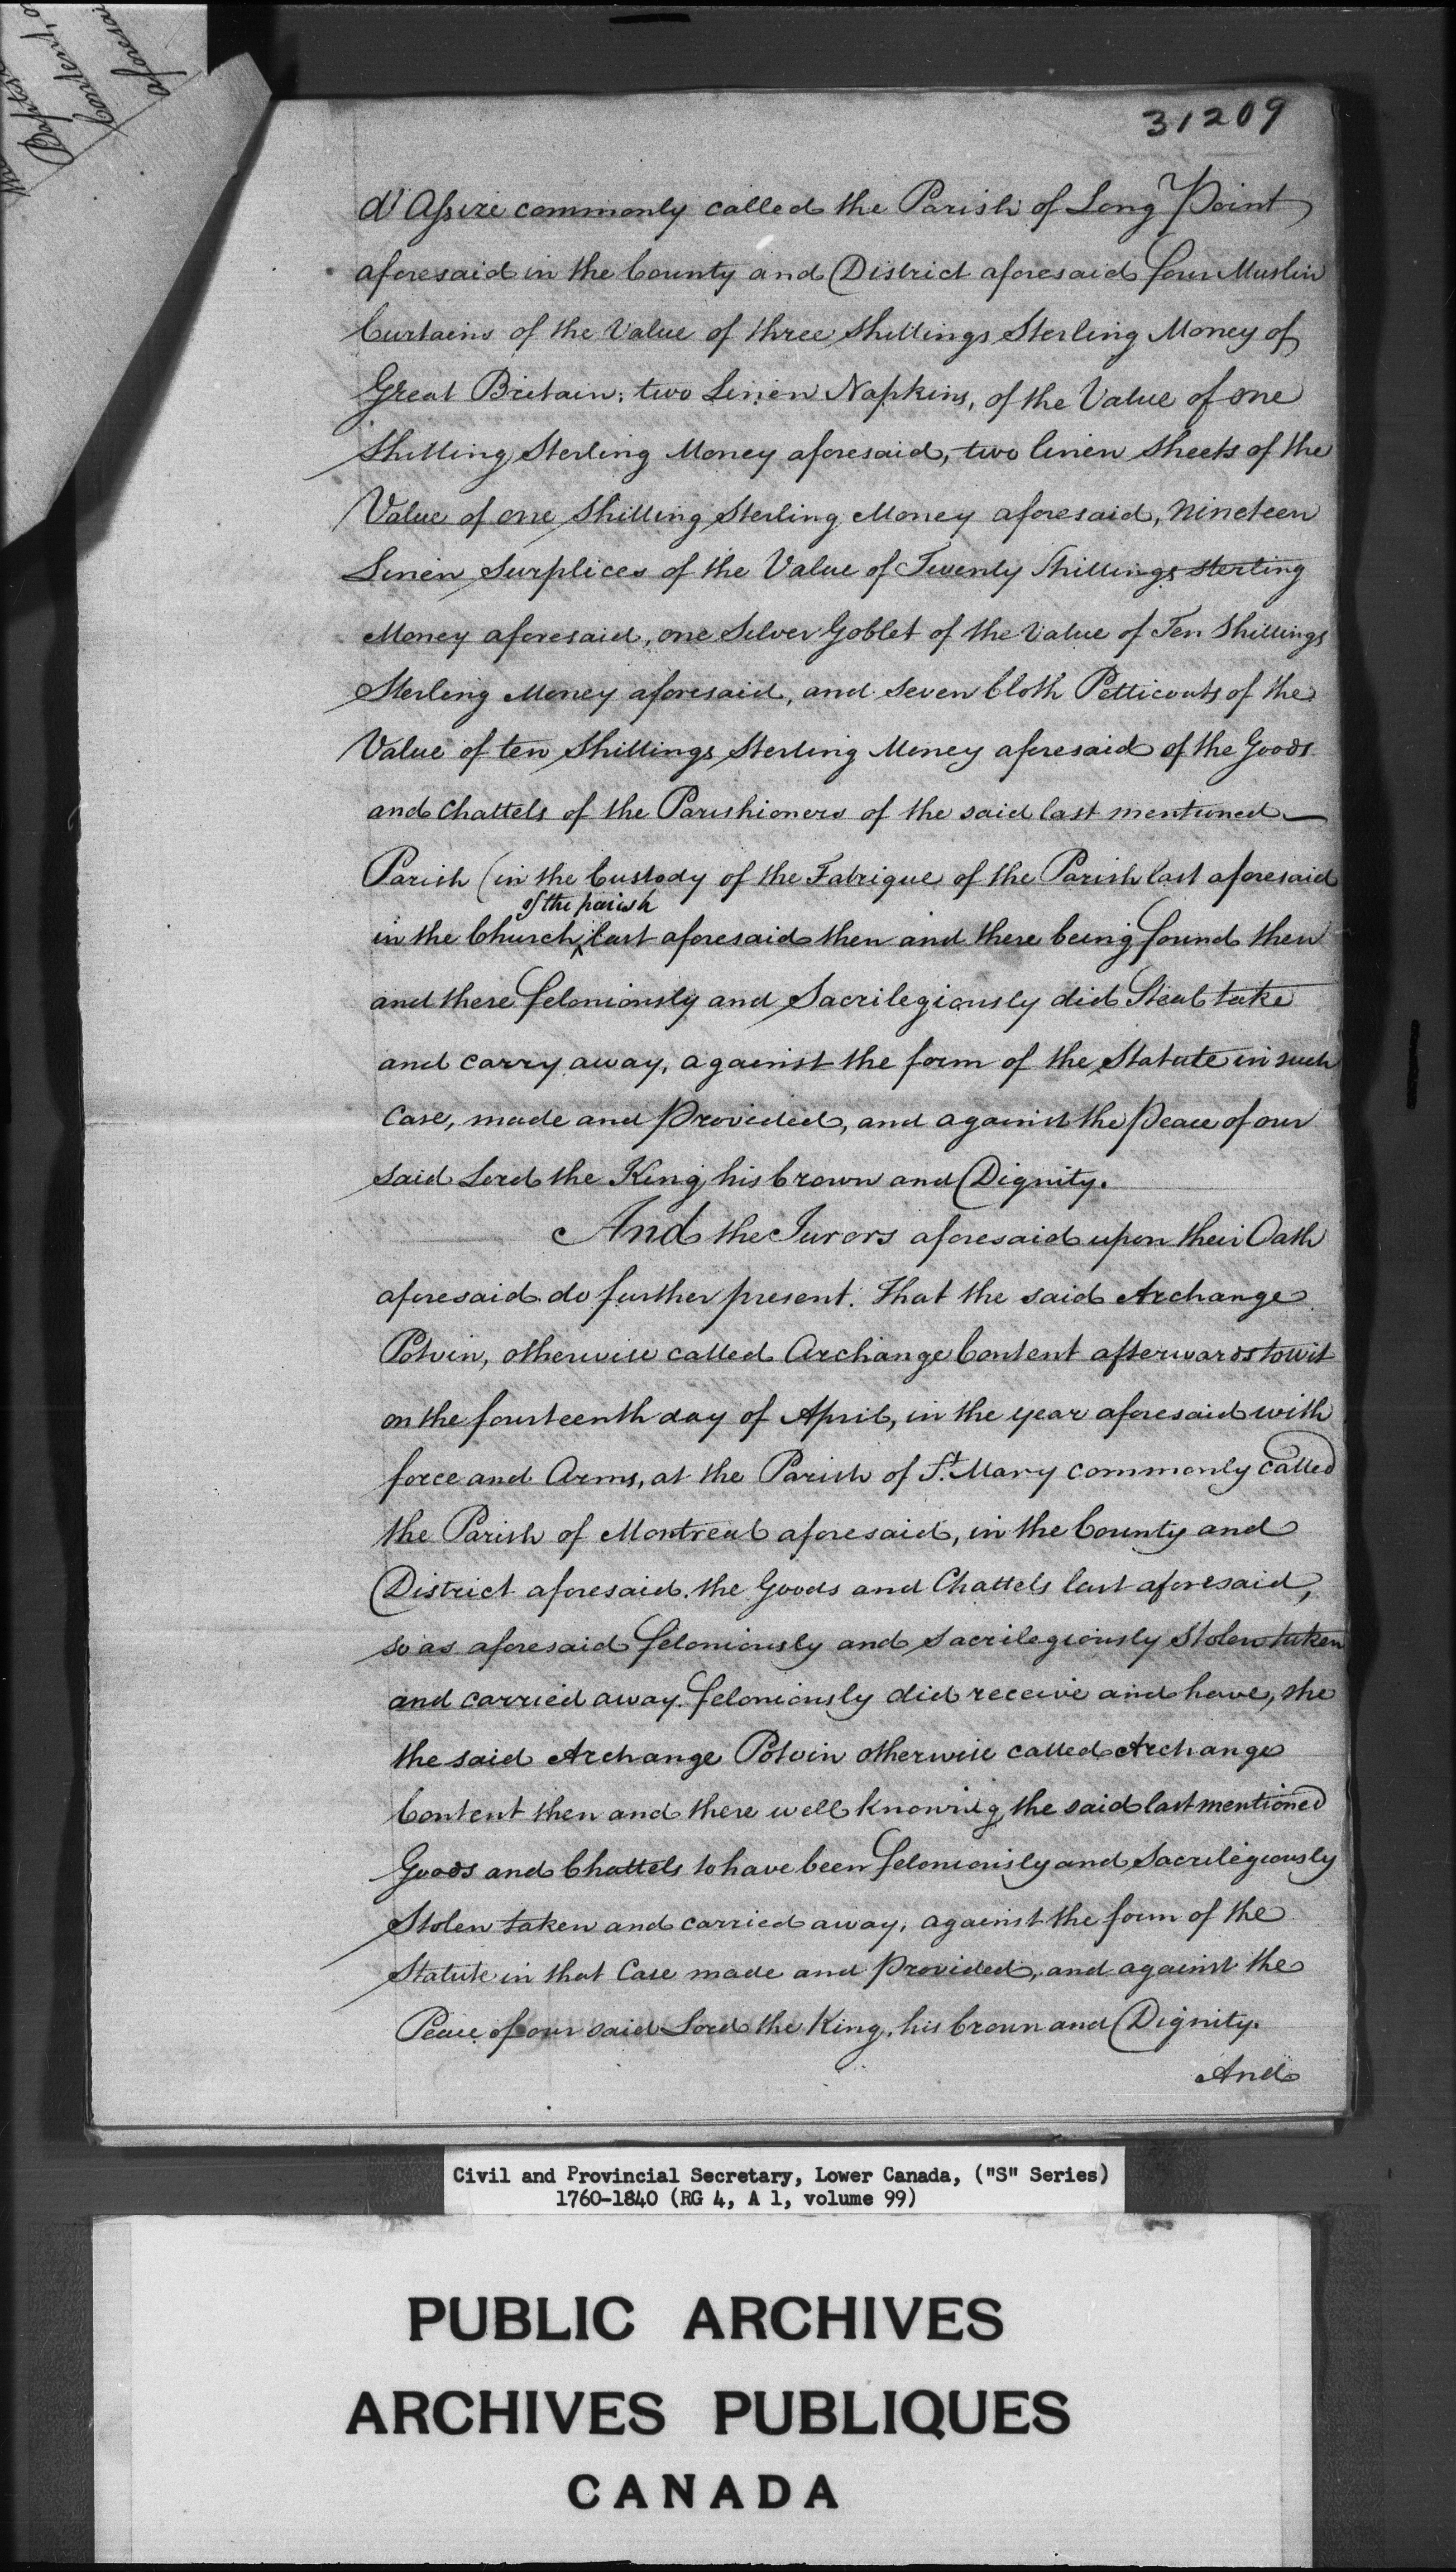 31209
d'Assize commonly called the Parish of Long Point
aforesaid in the County and District aforesaid four Muslin
Curtains of the Value of three Shillings Sterling Money of
Great Britain; two Linen Napkins, of the Value of one
Shilling Sterling Money aforesaid, two linen Sheets of the
Value of one Shilling Sterling Money aforesaid, Nineteen
Linen Surplices of the Value of Twenty Shillings sterling
Money aforesaid, one Silver Goblet of the Value of Ten Shillings
Sterling Money aforesaid, and Seven Cloth Petticoats of the
Value of ten Shillings Sterling Money aforesaid of the Goods
and Chattels of the Parishioners of the said last mentioned
Parish (in the Custody of the Fabrique of the Parish last aforesaid
of the parish
in the Church last aforesaid then and there being found then
and there feloniously and Sacrilegiously did Steal take
and carry away, against the form of the Statute in such
Case, made and Provided, and against the Peace of our
said Lord the King his Crown and Dignity.
And the Jurors aforesaid upon their Oath
aforesaid do further present. That the said Archange
Potvin, otherwise called Archange Content afterwards to wit
on the fourteenth day of April, in the year aforesaid with
force and Arms, at the Parish of St. Mary commonly called
the Parish of Montreal aforesaid, in the County and
District aforesaid. the Goods and Chattels last aforesaid,
so as aforesaid feloniously and Sacrilegiously Stolen taken
and carried away. feloniously did receive and have, she
the said Archange Potvin otherwise called Archange
Content then and there well knowing the said last mentioned
Goods and Chattels to have been feloniously and Sacrilegiously
Stolen taken and carried away, against the form of the
Statute in that Case made and Provided, and against the
Peace of our said Lord the King, his Crown and Dignity.
And
Civil and Provincial Secretary, Lower Canada, ("S" Series)
1760-1840 (RG 4, A 1, volume 99)
PUBLIC ARCHIVES
ARCHIVES PUBLIQUES
CANADA